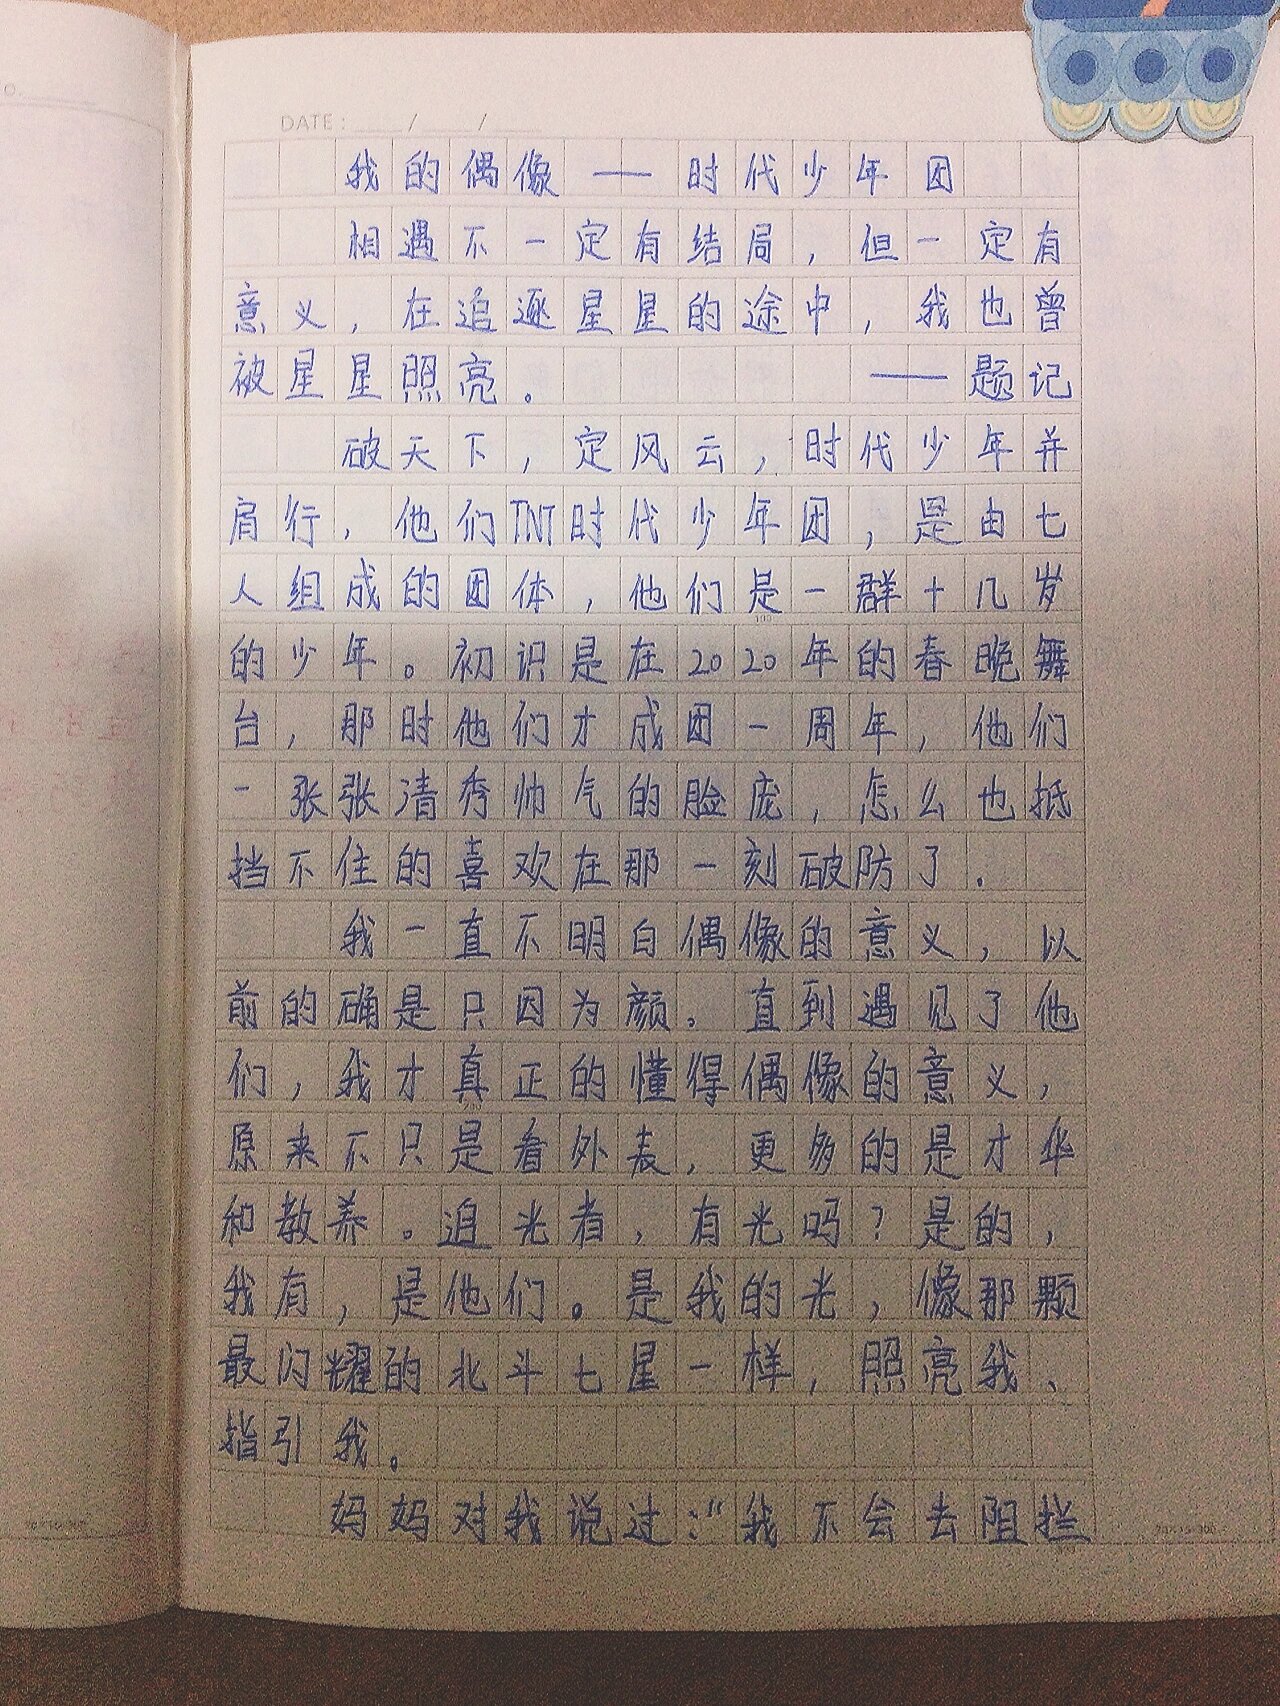 DATE: / /
我的偶像——时代少年团
相遇不一定有结局，但一定有
意义，在追逐星星的途中，我也曾
被星星照亮。 ——题记
破天下，定风云，时代少年并
肩行，他们TNT时代少年团，是由七
人组成的团体，他们是一群十几岁
的少年。初识是在2020年的春晚舞
台，那时他们才成团一周年，他们
一张张清秀帅气的脸庞，怎么也抵
挡不住的喜欢在那一刻破防了.
我一直不明白偶像的意义，以
前的确是只因为颜。直到遇见了他
们，我才真正的懂得偶像的意义，
原来不只是看外表，更多的是才华
和教养。追光者，有光吗？是的，
我有，是他们。是我的光，像那颗
最闪耀的北斗七星一样，照亮我、
指引我。
妈妈对我说过：“我不会去阻拦